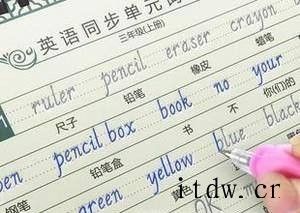 英语同步单元词
三年级(上册)
ruler pencil eraser crayon
尺子 铅笔 橡皮 蜡笔
pen pencil box book no your
钢笔 铅笔盒 书 不 你(们)的
green yellow blue black
黄色
OK
itdw.cr